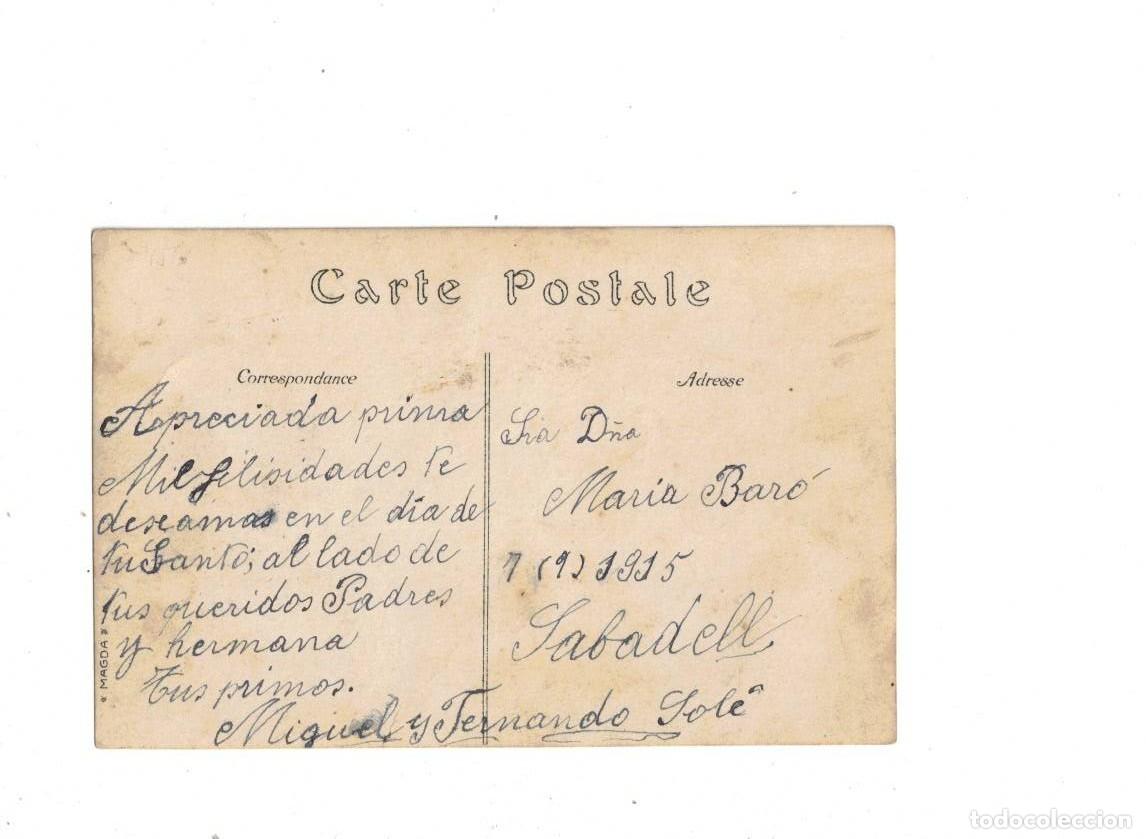 Carte Postale
Correspondance
Apreciada prima
Mil filisidades te
deseamos en el día de
tu Santo; al lado de
tus queridos Padres
y hermana
Tus primos.
Miguel y Fernando Solé
« MAGDA »
Adresse
Sra Dña
Maria Baró
7 (9) 1915
Sabadell
todocoleccion